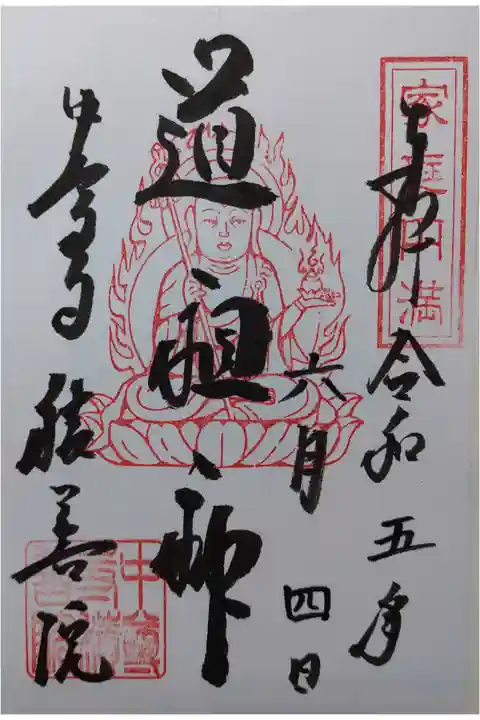 家庭円満
奉拝 令和五年
六月四日
道祖神
中尊寺 積善院